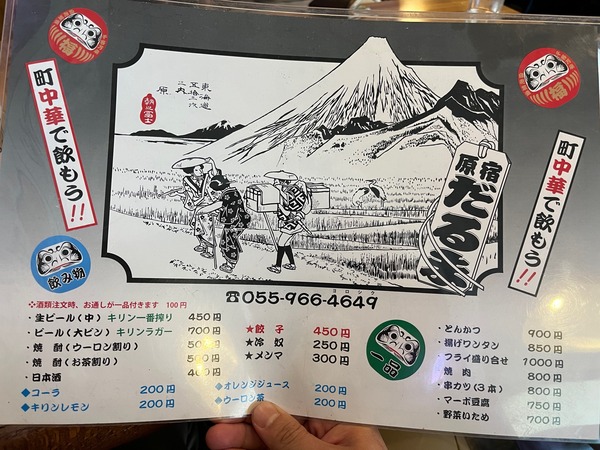 町中華で飲もう!!
東海道
五拾三次
之内
原
朝之富士
原宿
だるま
町中華で飲もう!!
飲み物
ヨロシク
☎055-966-4649
❖酒類注文時、お通しが一品付きます 100円
・生ビール(中) キリン一番搾り 450円
・ビール(大ビン) キリンラガー 700円
・焼 酎(ウーロン割り) 500円
・焼 酎(お茶割り) 500円
・日本酒 400円
◆コーラ 200円
◆キリンレモン 200円
★餃 子 450円
★冷 奴 250円
★メンマ 300円
◆オレンジジュース 200円
◆ウーロン茶 200円
一品
・とんかつ 900円
・揚げワンタン 850円
・フライ盛り合せ 1000円
・焼 肉 800円
・串カツ(3本) 800円
・マーボ豆腐 750円
・野菜いため 700円